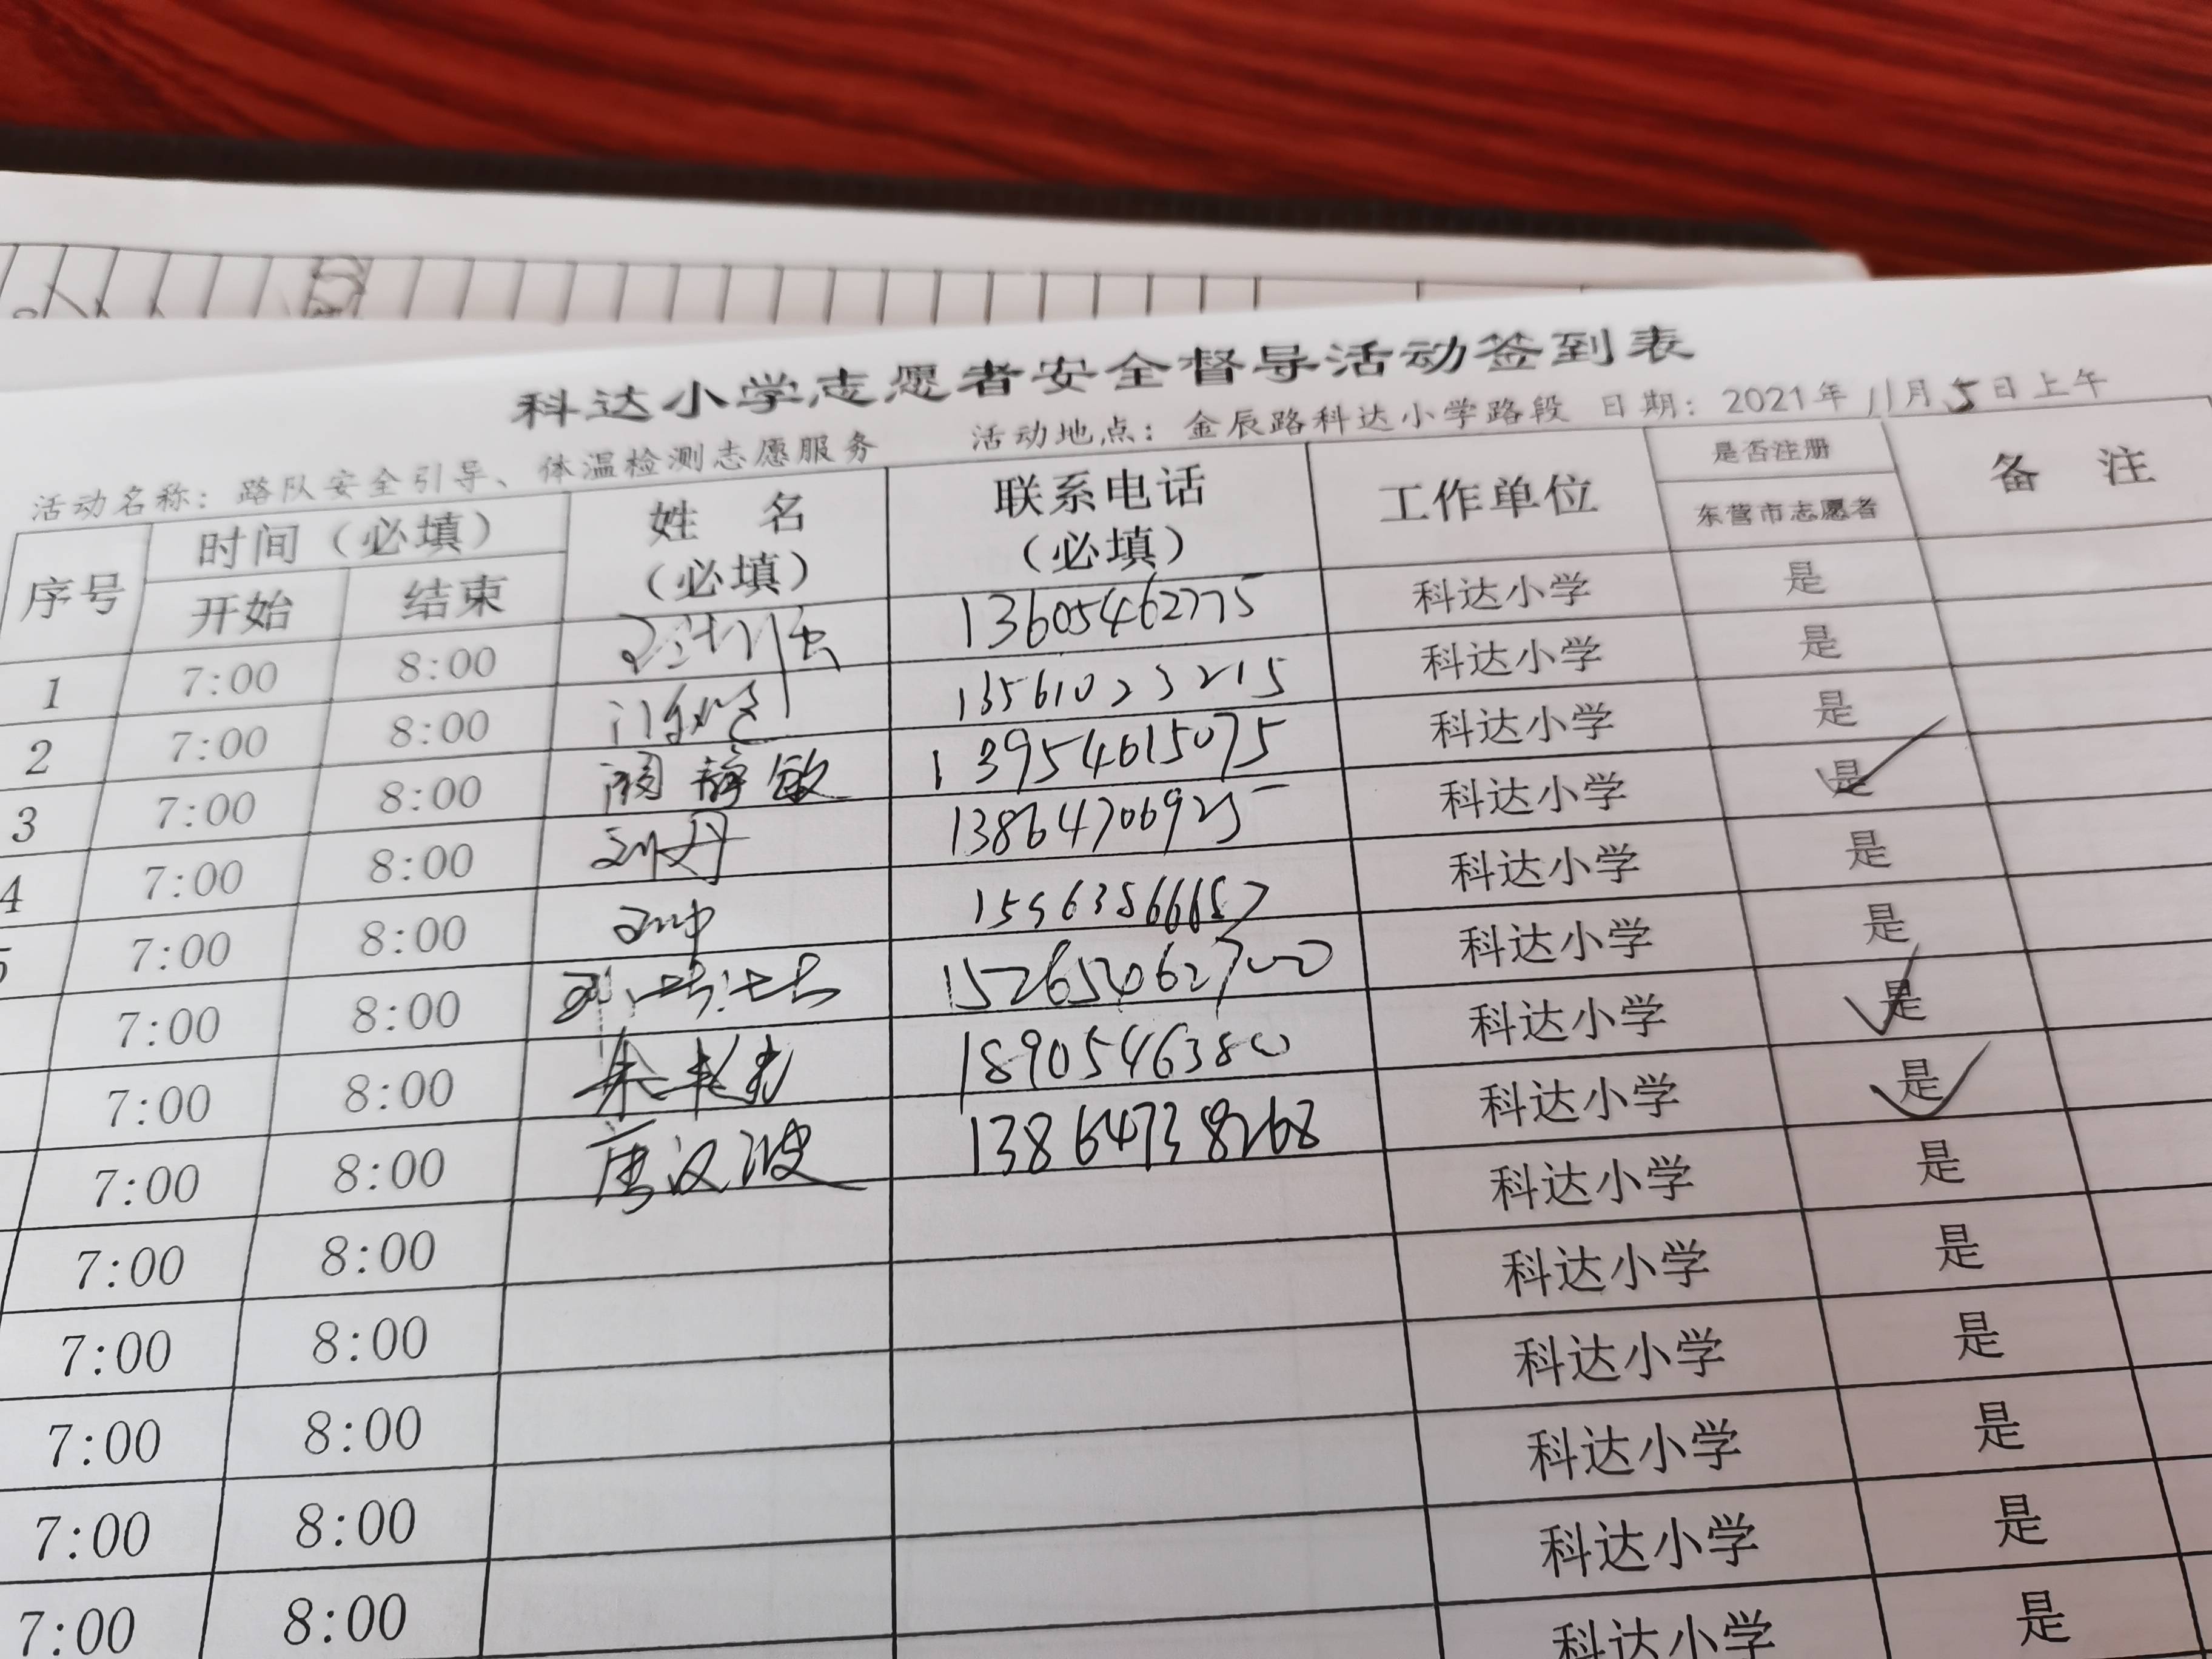 科达小学志愿者安全督导活动签到表
活动名称：路队安全引导、体温检测志愿服务 活动地点：金辰路科达小学路段 日期：2021年11月5日上午
序号 时间（必填） 姓 名（必填） 联系电话（必填） 工作单位 是否注册 备 注
开始 结束 东营市志愿者
1 7:00 8:00 13605462775 科达小学 是
2 7:00 8:00 13561023215 科达小学 是
3 7:00 8:00 阎静敏 13954615075 科达小学 是
4 7:00 8:00 刘丹 13864706925 科达小学 是
5 7:00 8:00 科达小学 是
7:00 8:00 152652062700 科达小学 是
7:00 8:00 1890546380 科达小学 是
7:00 8:00 唐汉波 13864738268 科达小学 是
7:00 8:00 科达小学 是
7:00 8:00 科达小学 是
7:00 8:00 科达小学 是
7:00 8:00 科达小学 是
7:00 8:00 科达小学 是
科达小学 是